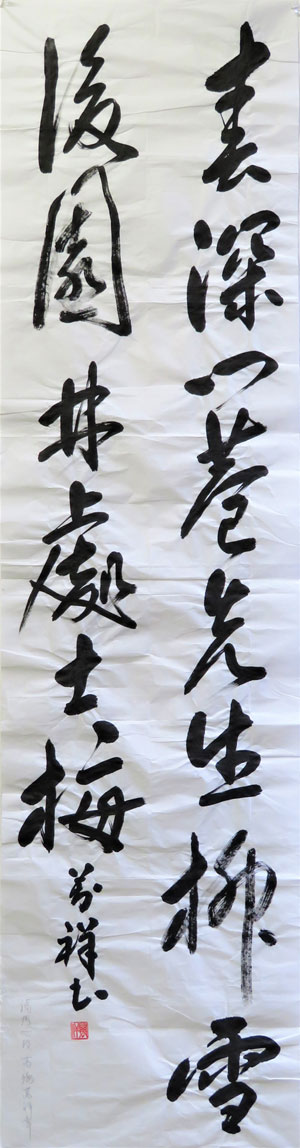 春深門巷先生柳雪
後園林處士梅
祥書